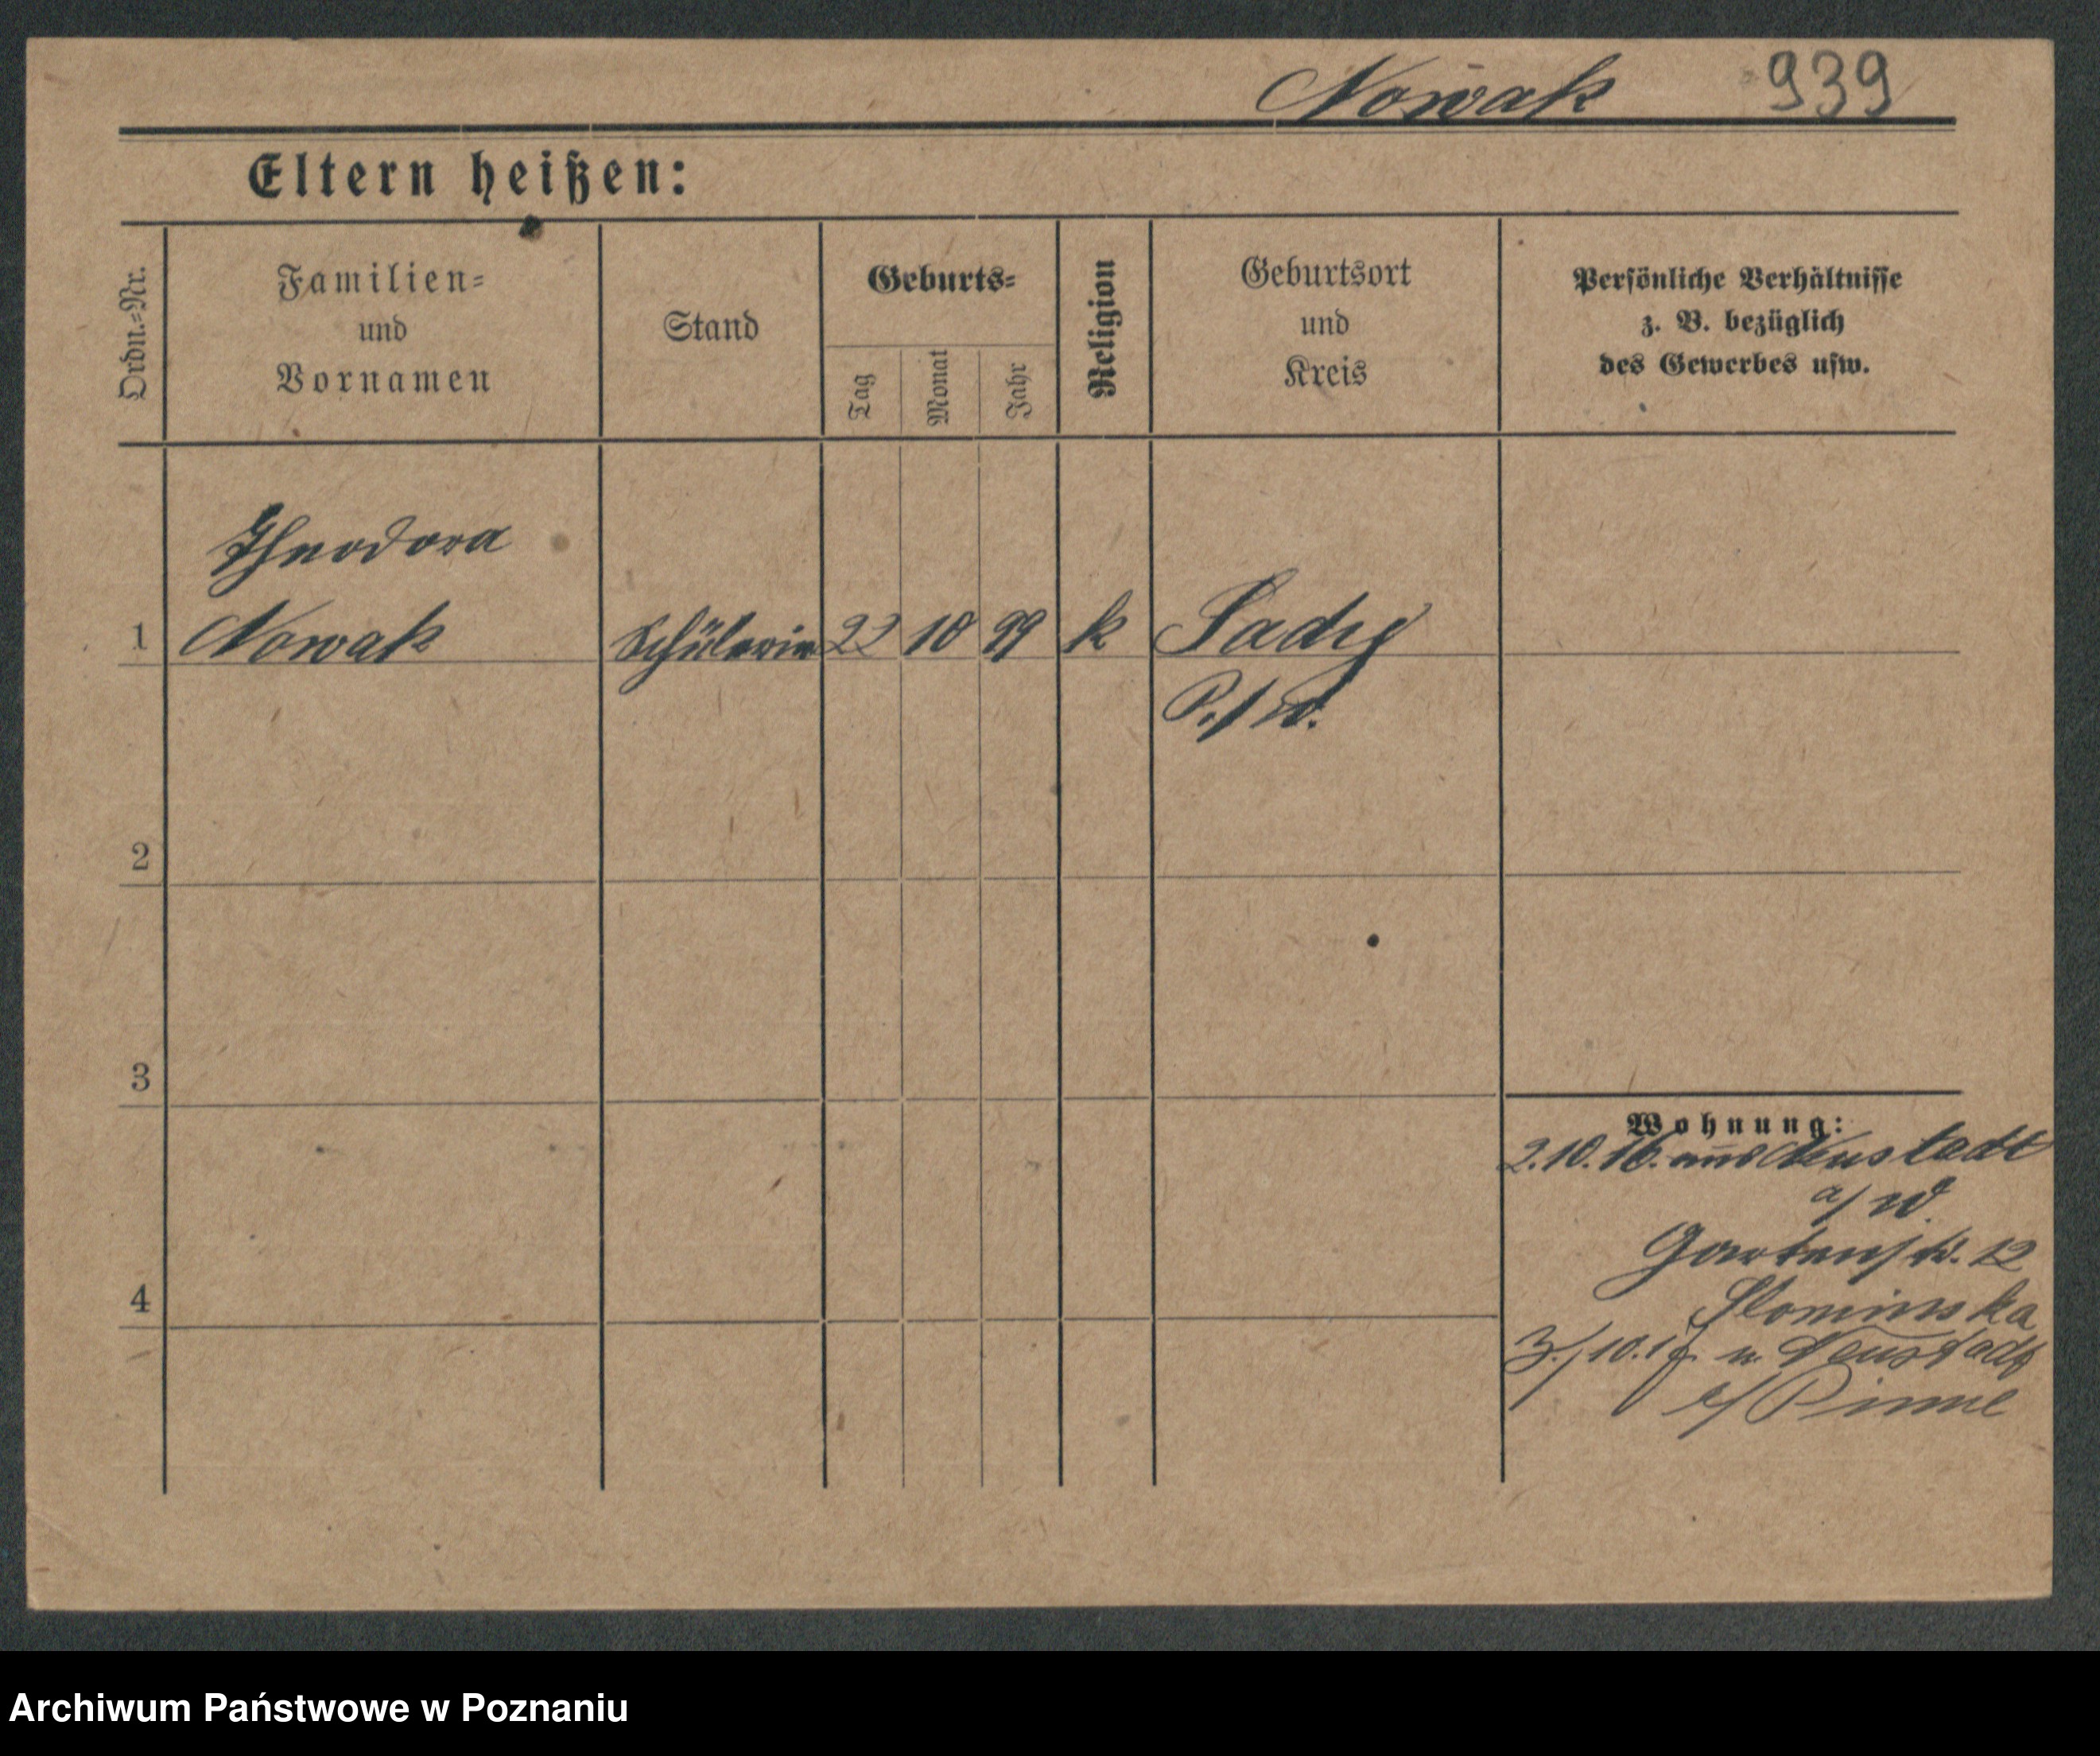 Nowak 939
Eltern heißen:
Ordn.=Nr.
Familien=
und
Vornamen
Stand
Geburts=
Tag
Monat
Jahr
Religion
Geburtsort
und
Kreis
Persönliche Verhältnisse
z. B. bezüglich
des Gewerbes usw.
Theodora
1 Nowak Schülerin 22 10 99 k Sady
P./W.
2
3
4
Wohnung:
2.10.16. aus Neustadt
a/W.
Gartenstr. 12
Slominska
3./10.17 n. Neustadt
b/Pinne
Archiwum Państwowe w Poznaniu